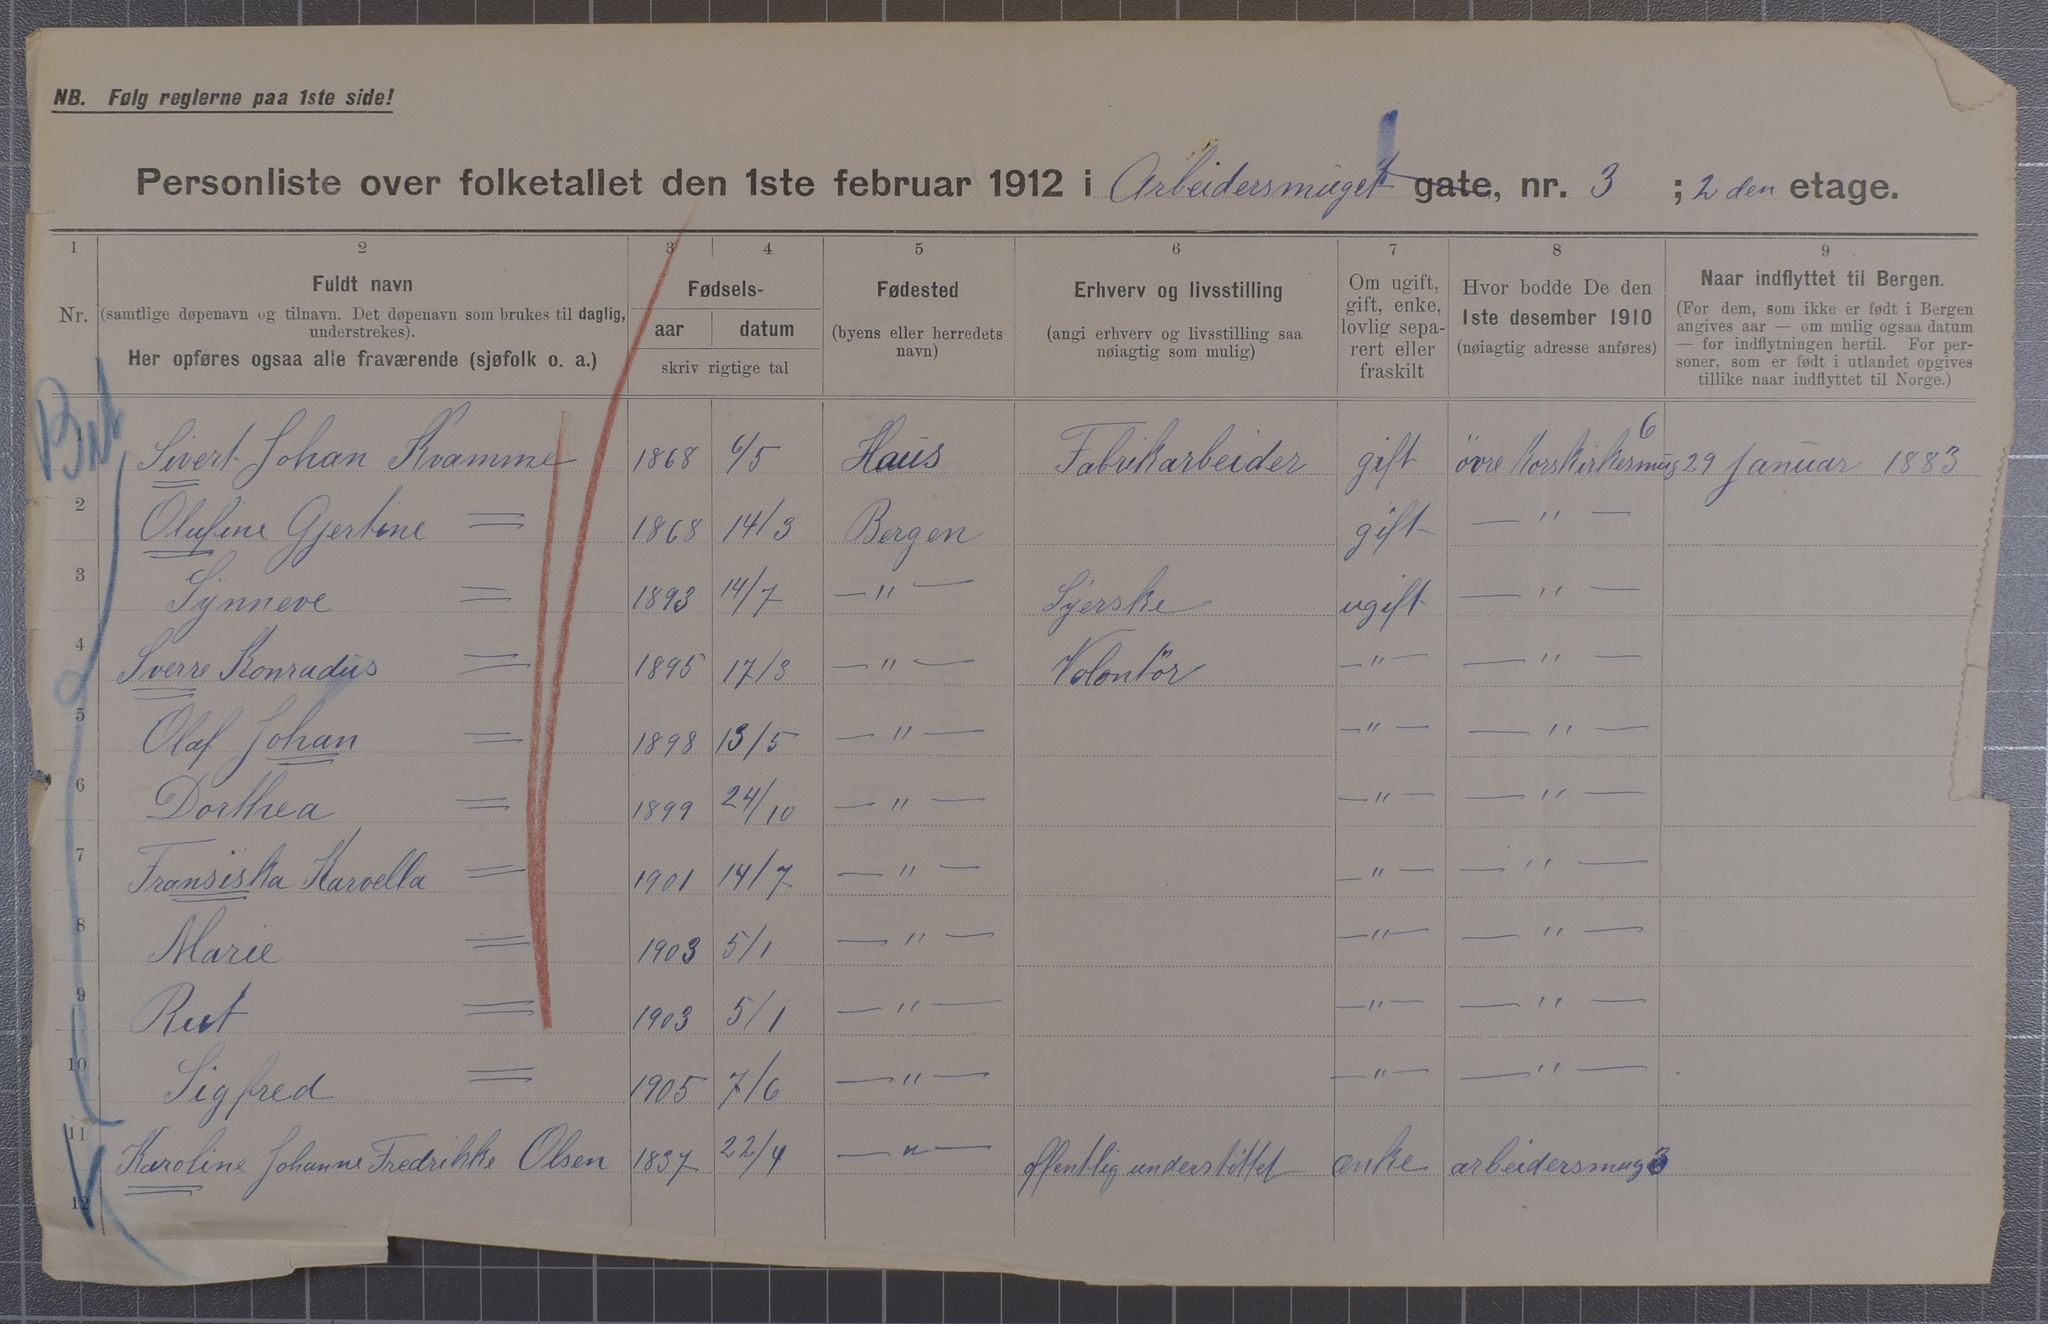 NB. Følg reglerne paa 1ste side!
Personliste over folketallet den 1ste februar 1912 i Arbeidersmuget gate, nr. 3 ; 2 den etage.
1 2 3 4 5 6 7 8 9
Nr.
Fuldt navn
(samtlige døpenavn og tilnavn. Det døpenavn som brukes til daglig, understrekes).
Her opføres ogsaa alle fraværende (sjøfolk o. a.)
Fødsels-
aar datum
skriv rigtige tal
Fødested
(byens eller herredets navn)
Erhverv og livsstilling
(angi erhverv og livsstilling saa nøiagtig som mulig)
Om ugift, gift, enke, lovlig separert eller fraskilt
Hvor bodde De den 1ste desember 1910
(nøiagtig adresse anføres)
Naar indflyttet til Bergen.
(For dem, som ikke er født i Bergen angives aar — om mulig ogsaa datum — for indflytningen hertil. For personer, som er født i utlandet opgives tillike naar indflyttet til Norge.)
1 Sivert Johan Kvamme 1868 6/5 Haus Fabrikarbeider gift övre Korskirkesmug 6 29 Januar 1883
2 Olufine Gjertine = 1868 14/3 Bergen gift — " —
3 Synneve = 1893 14/7 — " — Syerske ugift — " —
4 Sverre Konradus = 1895 17/3 — " — Volontör — " — — " —
5 Olaf Johan = 1898 13/5 — " — — " — — " —
6 Dorthea = 1899 24/10 — " — — " — — " —
7 Fransiska Karvella = 1901 14/7 — " — — " — — " —
8 Marie = 1903 5/1 — " — — " — — " —
9 Rut = 1903 5/1 — " — — " — — " —
10 Sigfred = 1905 7/6 — " — — " — — " —
11 Karoline Johanne Fredrikke Olsen 1837 22/4 — " — offentlig understöttet enke arbeidersmug 3
12